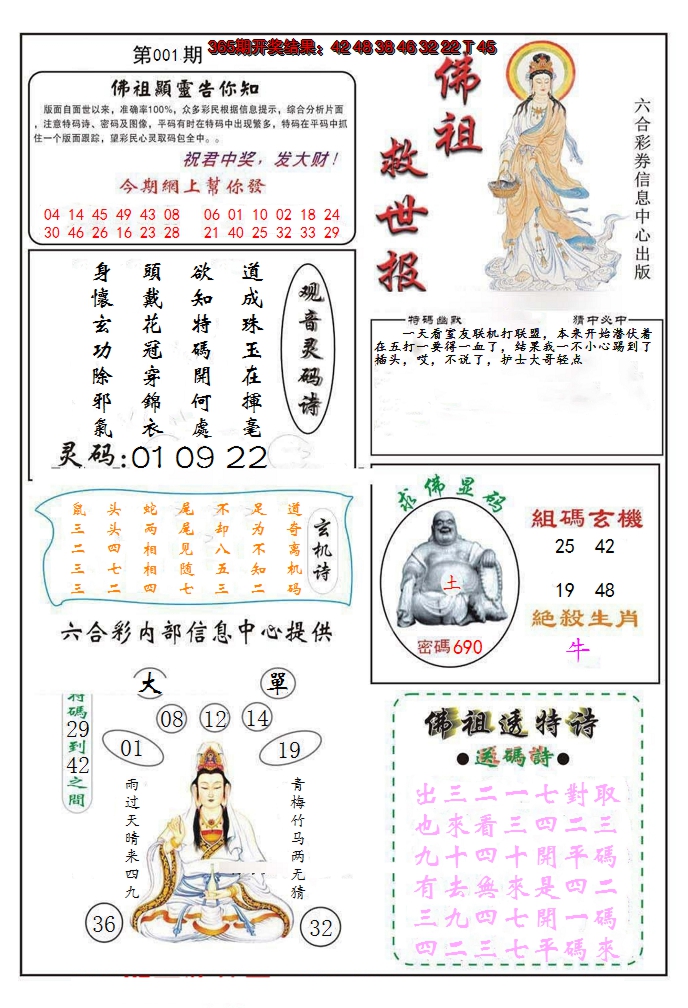 第001期
365期开奖结果：42 48 38 46 32 22 T 45
佛祖顯靈告你知
版面自面世以来，准确率100%，众多彩民根据信息提示，综合分析片面
，注意特码诗、密码及图像，平码有时在特码中出现繁多，特码在平码中抓
住一个版面跟踪，望彩民心灵取码包全中。。
祝君中奖，发大财！
今期網上幫你發
04 14 45 49 43 08 06 01 10 02 18 24
30 46 26 16 23 28 21 40 25 32 33 29
佛祖
救世报
六合彩券信息中心出版
观音灵码诗
道成珠玉在揮毫
欲知特碼開何處
頭戴花冠穿錦衣
身懷玄功除邪氣
灵码:01 09 22
特码幽默
猜中必中
一天看室友联机打联盟，本来开始潜伏着
在五打一要得一血了，结果我一不小心踢到了
插头，哎，不说了，护士大哥轻点
玄机诗
道奇离机码
足为不知二
不却八五三
尾尾见随七
蛇两相相四
头头四七二
鼠三二三三
六合彩内部信息中心提供
求佛显码
土
密碼690
組碼玄機
25 42
19 48
絕殺生肖
牛
大
單
特碼29到42之間
08 12 14
01
19
雨过天晴来四九
青梅竹马两无猜
36
32
佛祖透特诗
●送碼詩●
出三二一七對取
也來看三四二三
九十四十開平碼
有去無來是四二
三九四七開一碼
四二三七平碼來